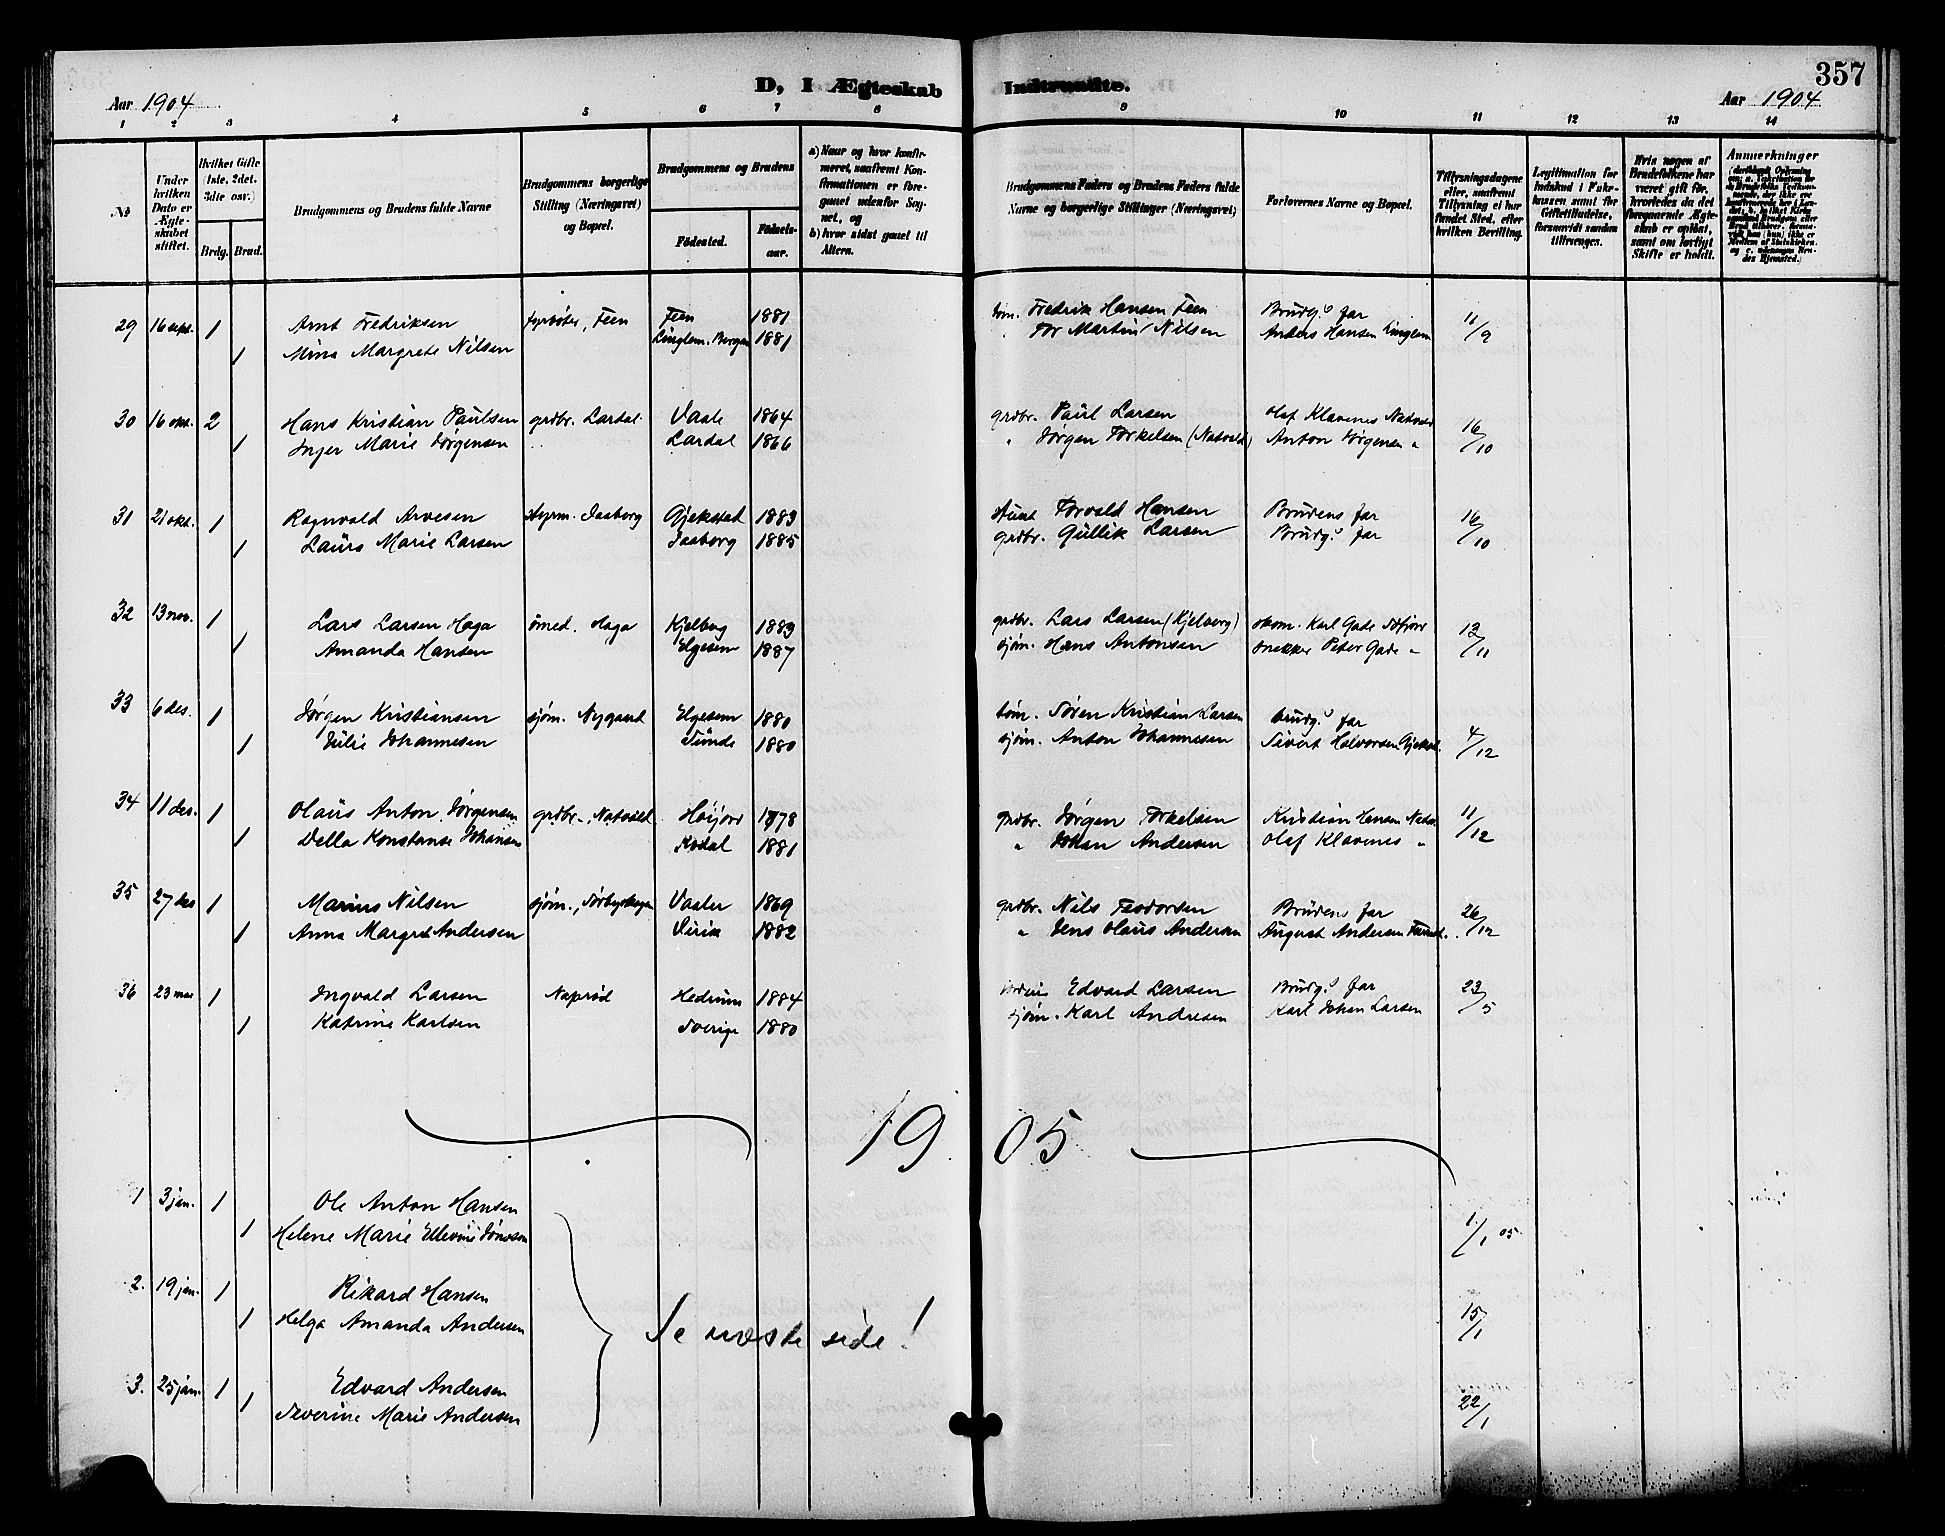 357
D, I Ægteskab Indtraadte.
Aar 1904
Aar 1904
1 2 3 4 5 6 7 8 9 10 11 12 13 14
No
Under hvilken Dato er Ægteskabet stiftet.
Hvilket Gifte (1ste, 2det, 3die osv.)
Brdg. Brud.
Brudgommens og Brudens fulde Navne
Brudgommens borgerlige Stilling (Næringsvei) og Bopæl.
Brudgommens og Brudens
Fødested. Fødselsaar.
a) Naar og hvor konfirmeret, saafremt Konfirmationen er foregaaet udenfor Sognet, og
b) hvor sidst gaaet til Alters.
Brudgommens Faders og Brudens Faders fulde Navne og borgerlige Stillinger (Næringsvei)
Forlovernes Navne og Bopæl.
Tillysningsdagene eller, saafremt Tillysning ei har fundet Sted, efter hvilken Bevilling.
Legitimation for Indskud i Fakrkassen samt for Giftetilladelse, forsaavidt saadan tiltrænges.
Hvis nogen af Brudefolkene har været gift før, hvorledes da det foregaaende Ægteskab er opløst, samt om lovligt Skifte er holdt.
Anmerkninger
29 16 sept. 1 Arnt Fredriksen fyrbøter, Feen Feen 1881 tom. Fredrik Hansen Feen Brudg.s far 11/9
1 Mina Margrete Nilsen Linglem. Bergan 1881 " Tor Martin Nilsen Anders Hansen Linglem
30 16 okt. 2 Hans Kristian Paulsen grdbr. Lardal Vaale 1864 grdbr. Paul Larsen Olaf Klavenes Natvold 16/10
1 Inger Marie Jørgensen Lardal 1866 " Jørgen Torkelsen (Natvold) Anton Jørgensen "
31 21 okt. 1 Ragnvald Arvesen styrm. Gjekstad 1883 Torvald Hansen Brudens far 16/10
1 Laura Marie Larsen 1885 grdbr. Gullik Larsen Brudg.s far
32 13 nov. 1 Lars Larsen Haga smed. Haga Kjelberg 1883 grdbr. Lars Larsen (Kjelberg) Karl Gade 13/11
1 Amanda Hansen Elgesem 1887 sjøm. Hans Antonsen snekker Peter Gade "
33 6 des. 1 Jørgen Kristiansen sjøm. Nygaard Elgesem 1880 tøm. Søren Kristian Larsen brudg.s far 4/12
1 Julie Johannesen Sunde 1880 sjøm. Anton Johannesen Sivert Halvorsen
34 11 des. 1 Olaus Anton Jørgensen grdbr., Natvold Høijord 1878 grdbr. Jørgen Torkelsen Kristian Hansen Natv. 11/12
1 Della Konstanse Johansen Kodal 1881 " Johan Andersen Olaf Klavenes "
35 27 des 1 Marius Nilsen sjøm., Vaaler 1869 grdbr. Nils Teodorsen Brudens far 26/12
1 Anna Margret Andersen Virik 1882 " Jens Olaus Andersen August Andersen
36 23 mai 1 Ingvald Larsen Naprød Hedrum 1884 Edvard Larsen Brudg.s far 23/5
1 Katrine Karlsen Sverige 1880 sjøm. Karl Andresen Karl Johan Larsen
1905
1 3 jan. 1 Ole Anton Hansen 1/1 05.
1 Helene Marie Ellevine Jonsson
2. 19 jan. 1 Rikard Hansen 15/1
1 Helga Amanda Andersen
Se næste side!
3. 25 jan. 1 Edvard Andersen 22/1
1 Severine Marie Andersen